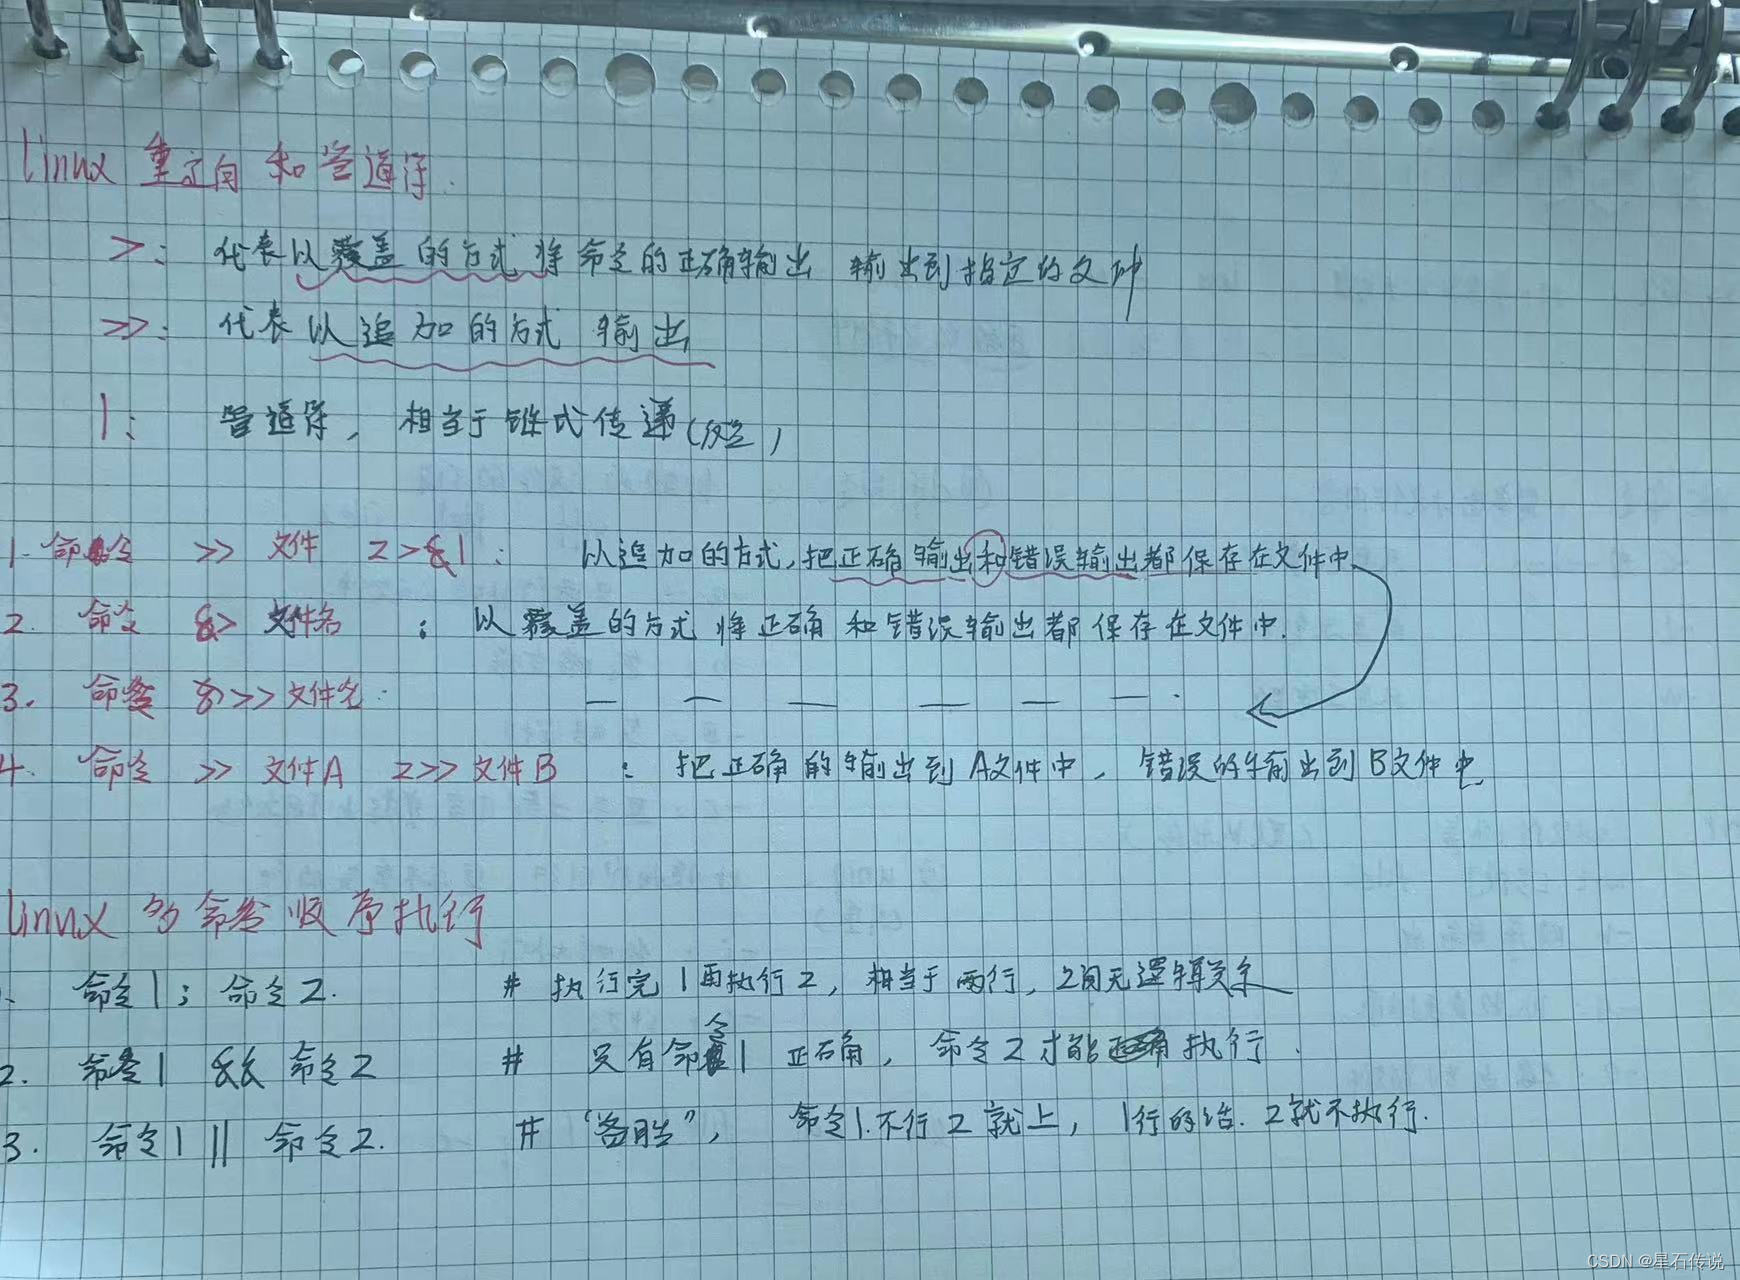 linux 重定向 和管道符.
>: 代表以覆盖的方式将命令的正确输出 输出到指定的文件
>>: 代表以追加的方式 输出
|: 管道符, 相当于链式传递()
1. 命令 >> 文件 2>&1: 以追加的方式,把正确输出和错误输出都保存在文件中
2. 命令 &> 文件名 : 以覆盖的方式将正确和错误输出都保存在文件中.
3. 命令 &>>文件名: — — — — — — .
4. 命令 >> 文件A 2>> 文件B : 把正确的输出到A文件中, 错误的输出到B文件中.
linux 的命令顺序执行
命令1; 命令2. # 执行完1再执行2, 相当于两行, 2间无逻辑关系
2. 命令1 && 命令2 # 只有命令1 正确, 命令2才能执行.
3. 命令1 || 命令2. # “备胎”, 命令1.不行2就上, 1行的话.2就不执行.
CSDN @星石传说